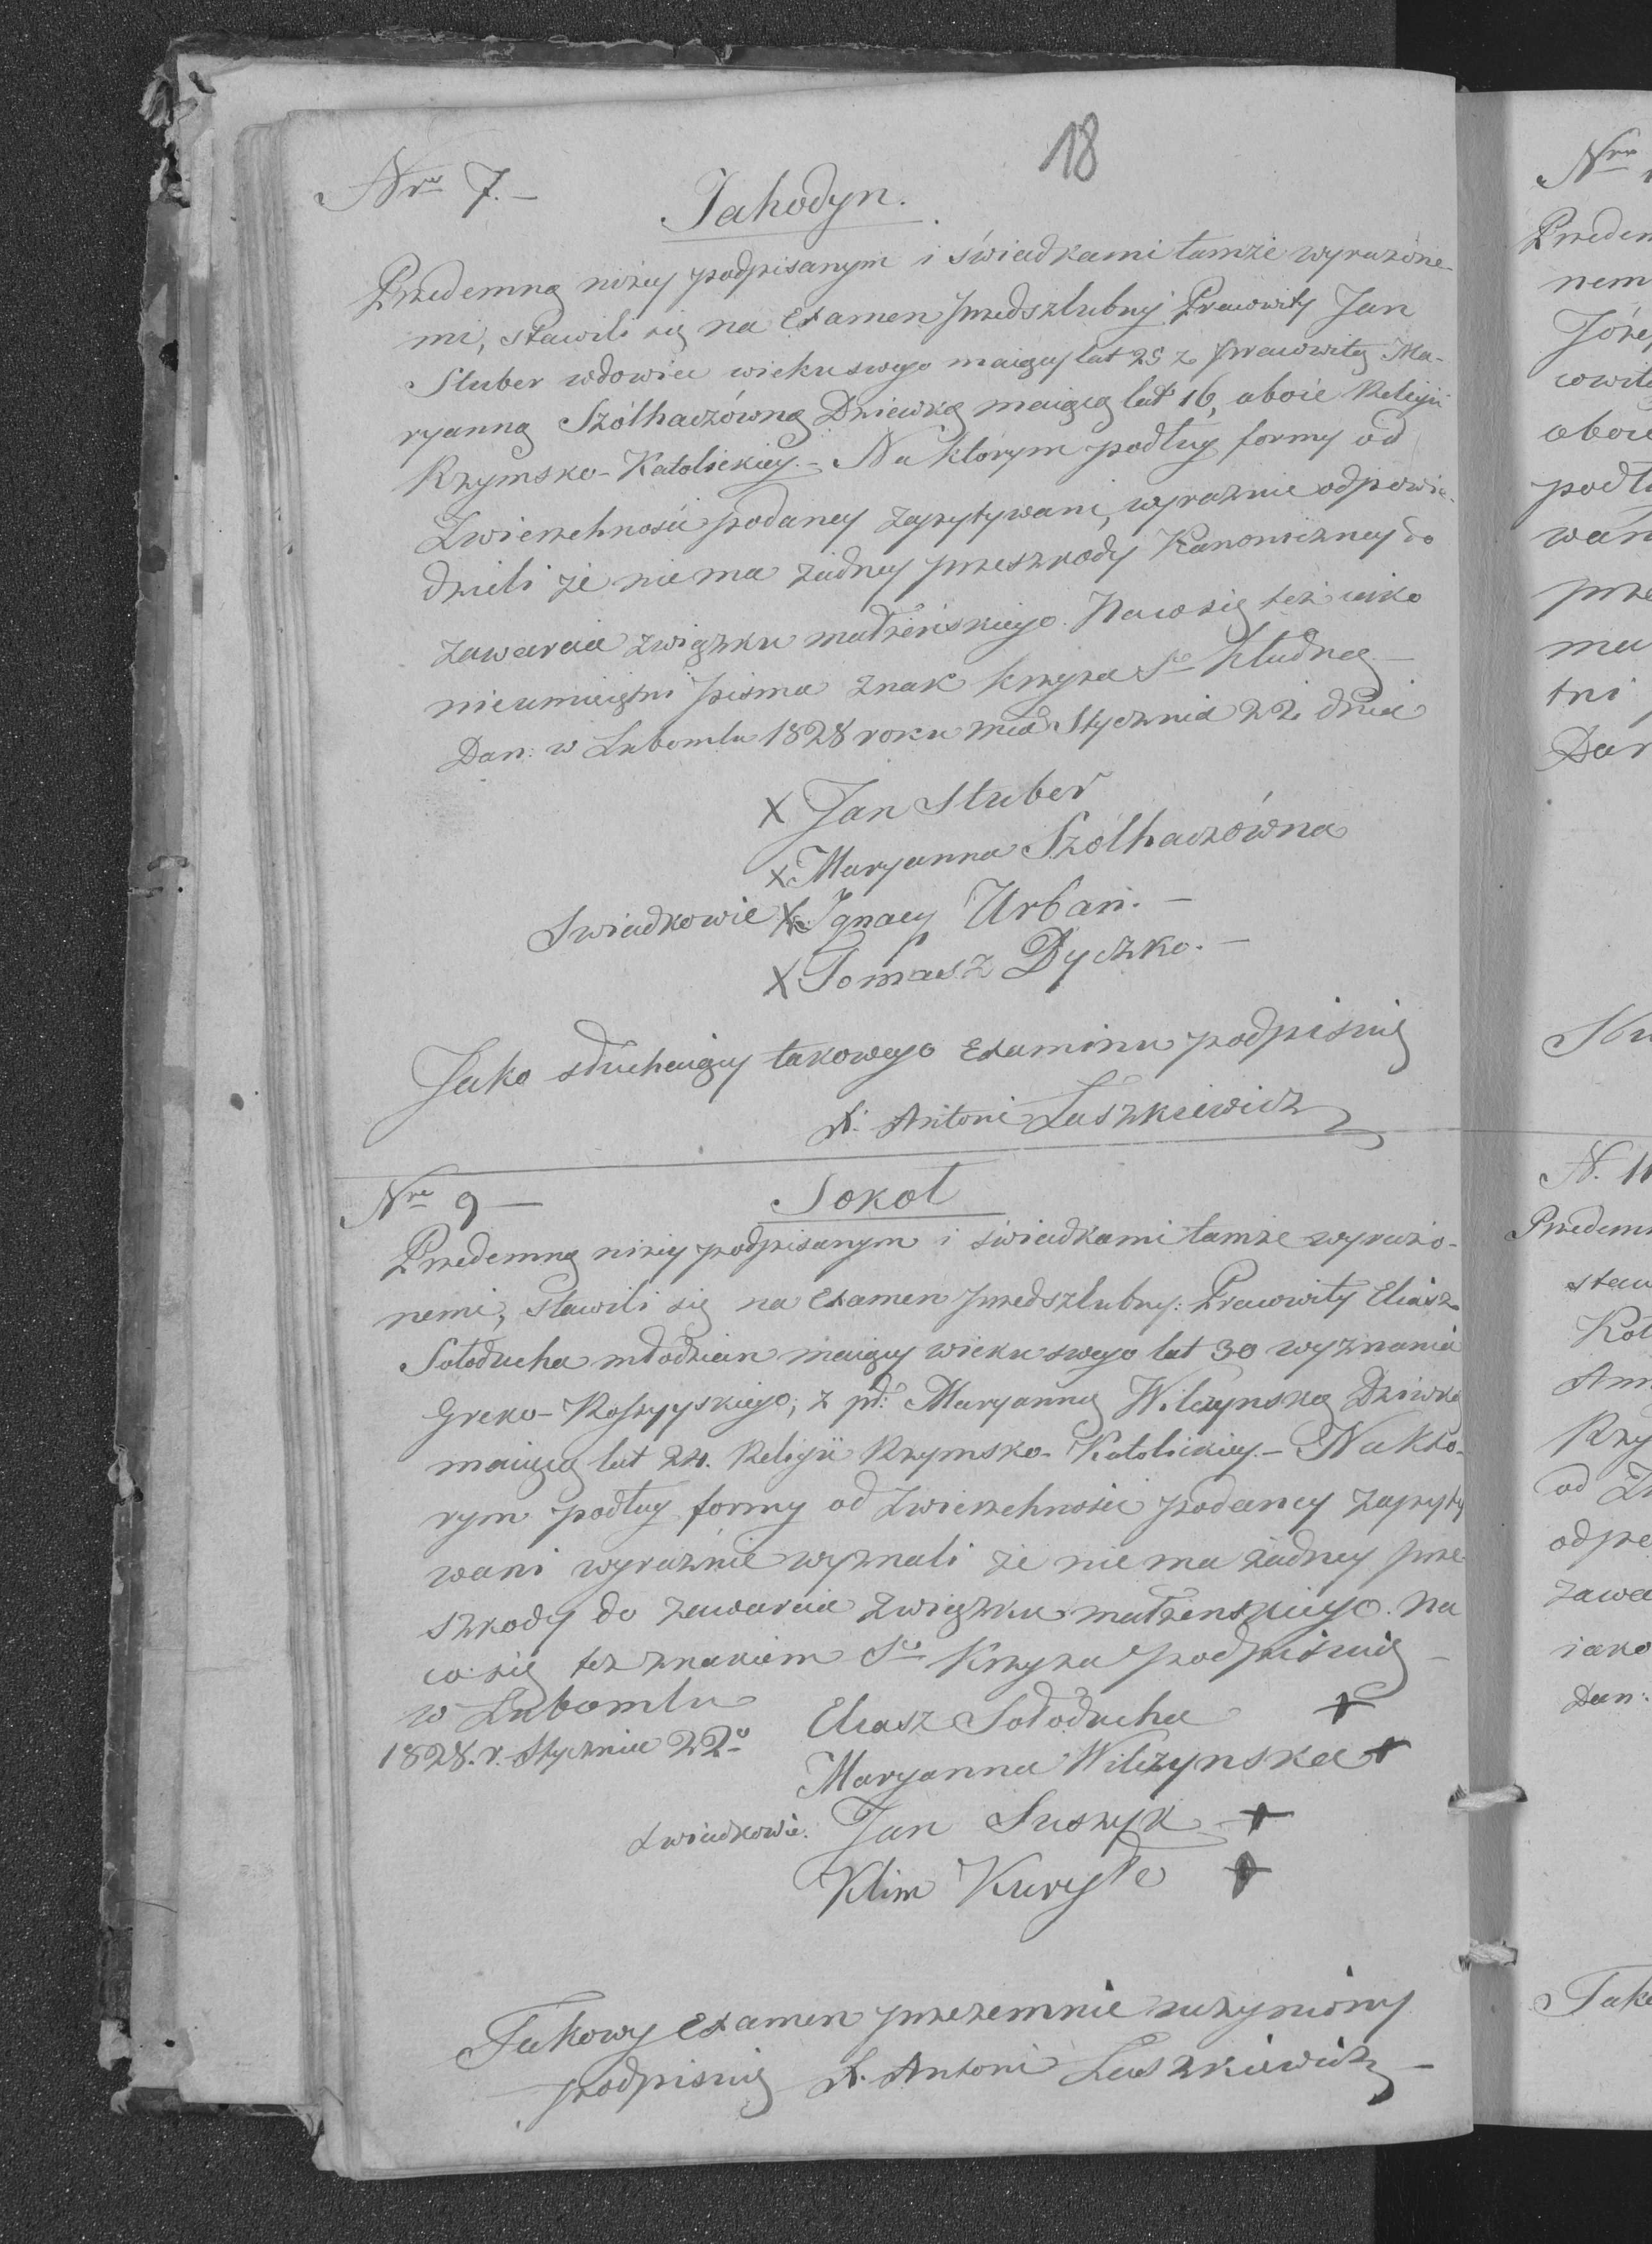 18
Nro 7.–
Jahodyn.
Przedemną niżey podpisanym i świadkami tamże wyrażone-
mi, stawili się na Examen przedszlubny Prawowity Jan
Stuber wdowiec wieku swego maiący lat 25 z prawowitą Ma-
ryanną Szólhaczówną Dziewką maiącą lat 16, oboie Religii
Rzymsko-Katolickiey.– Na którym podług formy od
Zwierzchności podaney zapytywani, wyraznie odpowie-
dzieli że niema żadney przeszkody Kanoniczney do
zawarcia związku małżeńskiego. Na co się też iako
nieumieiętni pisma znak krzyża Sgo kładną–
Dan: w Lubomlu 1828 roku mca Stycznia 22 dnia
X Jan Stuber
X Maryanna Szólhaczówna
Swiadkowie X Ignacy Urban.–
X Tomasz Dyczko.–
Jako słuchaiący takowego Examinu podpisuię
X. Antoni Laszkiewicz
Nro 9 –
Sokoł
Przedemną niżey podpisanym i świadkami tamże wyrażo-
nemi, stawili się na Examen przedszlubny: Prawowity Eliasz
Sołoducha młodzian maiący wieku swego lat 30 wyznania
Greko-Rossyyskiego; z pr: Maryanną Wilczynską Dziewką
maiącą lat 24. Religii Rzymsko-Katolickiey.– Na któ-
rym podług formy od zwierzchności podaney zapyty
wani wyraznie wyznali że niema żadney prze-
szkody do zawarcia związku małżenskiego. Na
co się też znakiem Sgo Krzyża podpisuią–
w Lubomlu
1828. r. Stycznia 22o
Eliasz Sołoducha +
Maryanna Wilczynska +
Swiadkowie. Jan Suszyk +
Klim Kuryło +
Takowy Examen przezemnie uczyniony
podpisuię X. Antoni Laszkiewicz –